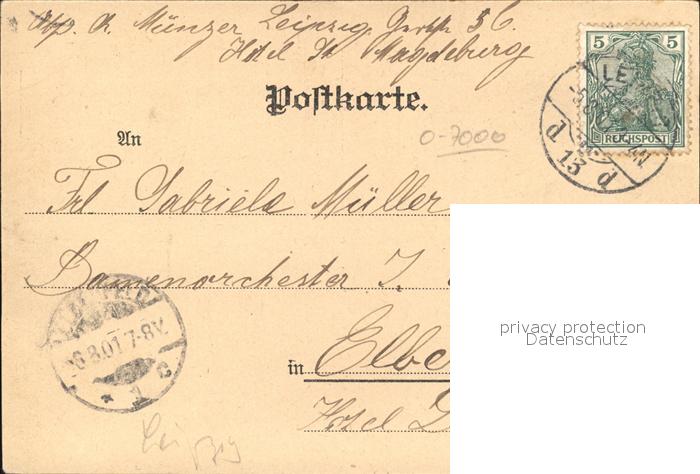 Abp. A. Münzer Leipzig Gertstr 56.
Hotel St Magdeburg
5 5
REICHSPOST
LE
d 13 d
Postkarte.
An
0-7000
Frl Gabriele Müller
Damenorchester J.
6.8.01 7-8V.
* 1 c
in Elbe
Hotel
Leipzig
privacy protection
Datenschutz